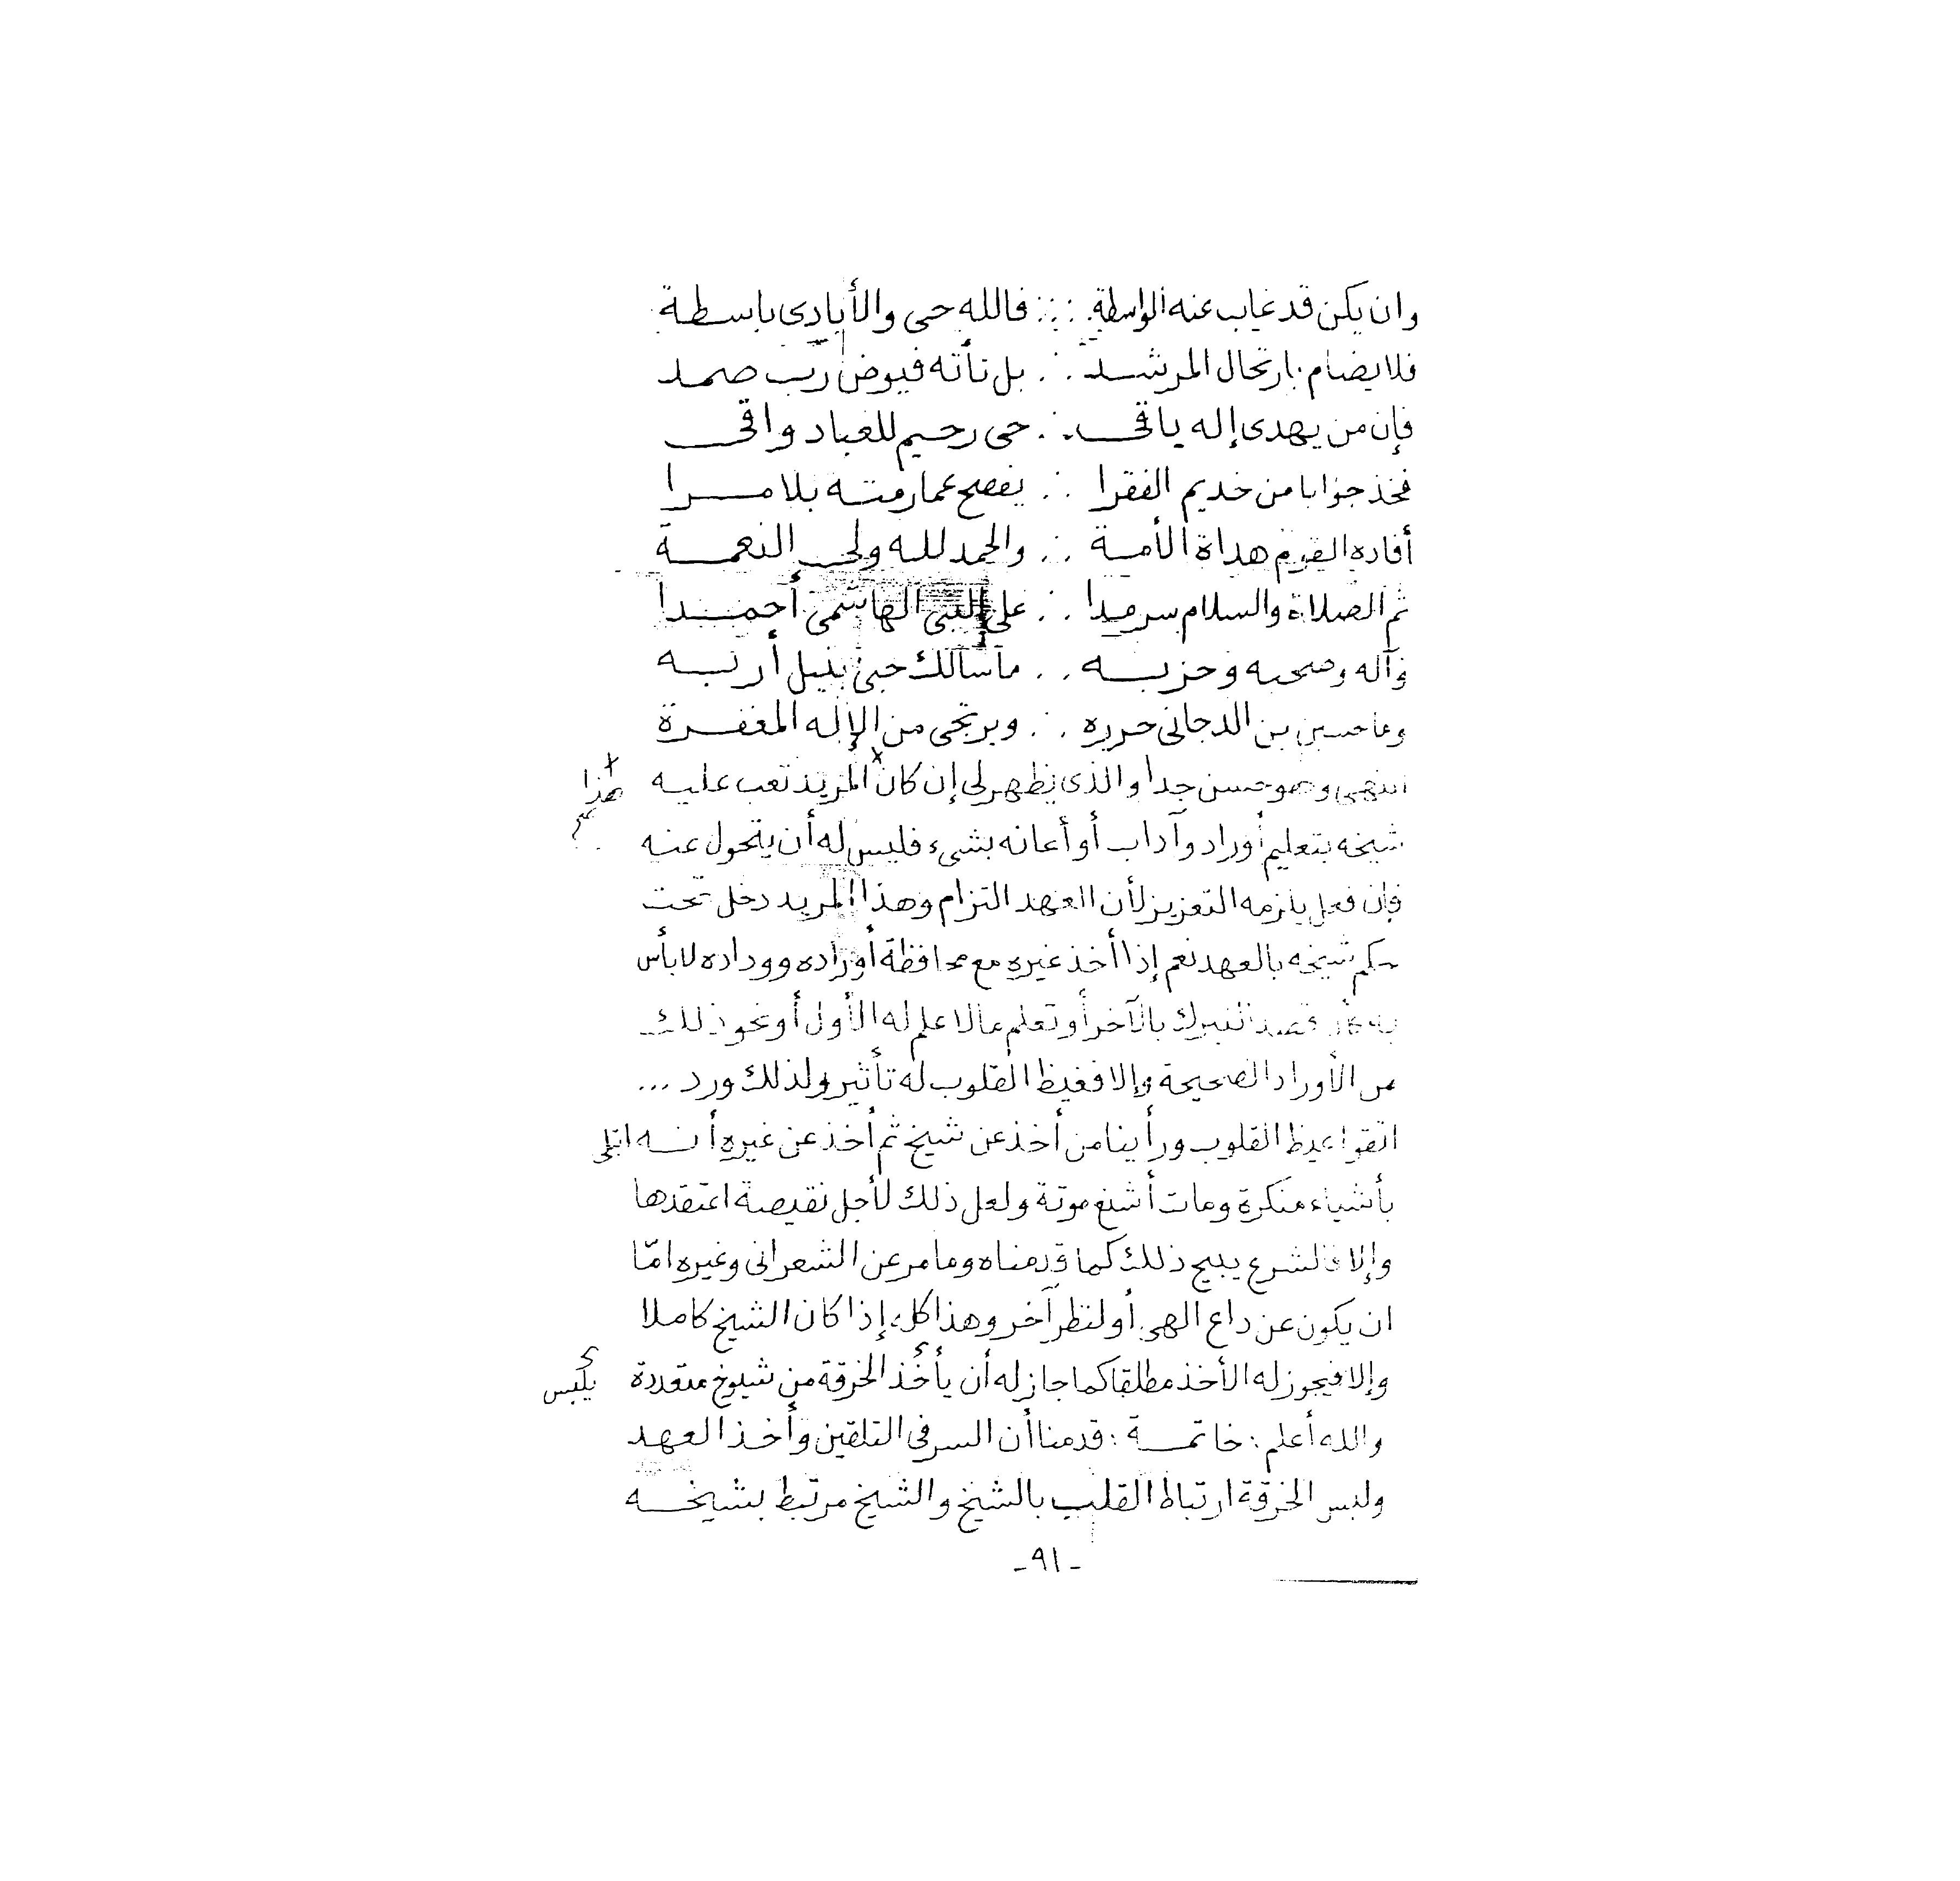 وان يكن قد غاب عنه الواسطة ∴ فالله حى والأيادى باسطة
فلا يضام بارتحال المرشد ∴ بل تأته فيوض رب صمد
فإن من يهدى إله باقى ∴ حى رحيم للعباد واقى
فخذ جوابا من خديم الفقرا ∴ يفصح عما رمته بلا مرا
أفاده القوم هداة الأمة ∴ والحمد لله ولى النعمة
ثم الصلاة والسلام سرمدا ∴ على النبى الهاشمى أحمدا
وآله وصحبه وحزبه ∴ ما سالك حبى بنيل أربه
وما حسين بن الدجانى حرره ∴ ويرتجى من الإله المغفرة
انتهى وهو حسن جدا والذى يظهر لى إن كان × المريد تعب عليه
× هذا
شيخه بتعليم أوراد وآداب أو أعانه بشىء فليس له أن يتحول عنه
فإن فعل يلزمه التعزيز لأن العهد التزام وهذا المريد دخل تحت
حكم شيخه بالعهد نعم إذا أخذ غيره مع محافظة أوراده ووداده لا بأس
به قصد التبرك بالآخر أو تعلم ما لا علم له الأول أو نحو ذلك
من الأوراد الصحيحة وإلا فغيظ القلوب له تأثير ولذلك ورد ...
اتقوا غيظ القلوب ورأينا من أخذ عن شيخ ثم أخذ عن غيره أنه ابتلى
بأشياء منكرة ومات أشنع موتة ولعل ذلك لأجل نقيصة اعتقدها
وإلا فالشرع يبيح ذلك كما قدمناه وما مر عن الشعرانى وغيره امّا
ان يكون عن داع الهى أو لنظر آخر وهذا كله إذا كان الشيخ كاملا
وإلا فيجوز له الأخذ مطلقا كما جاز له أن يأخذ الخرقة من شيوخ متعددة
يلبس
والله أعلم : خاتمة : قدمنا أن السر فى التلقين وأخذ العهد
ولبس الخرقة ارتباط القلب بالشيخ والشيخ مرتبط بشيخه
- ٩١ -